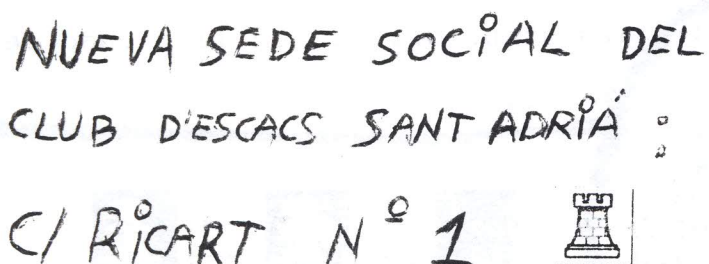 NUEVA SEDE SOCIAL DEL
CLUB D'ESCACS SANT ADRIÁ :
C/ RICART Nº 1